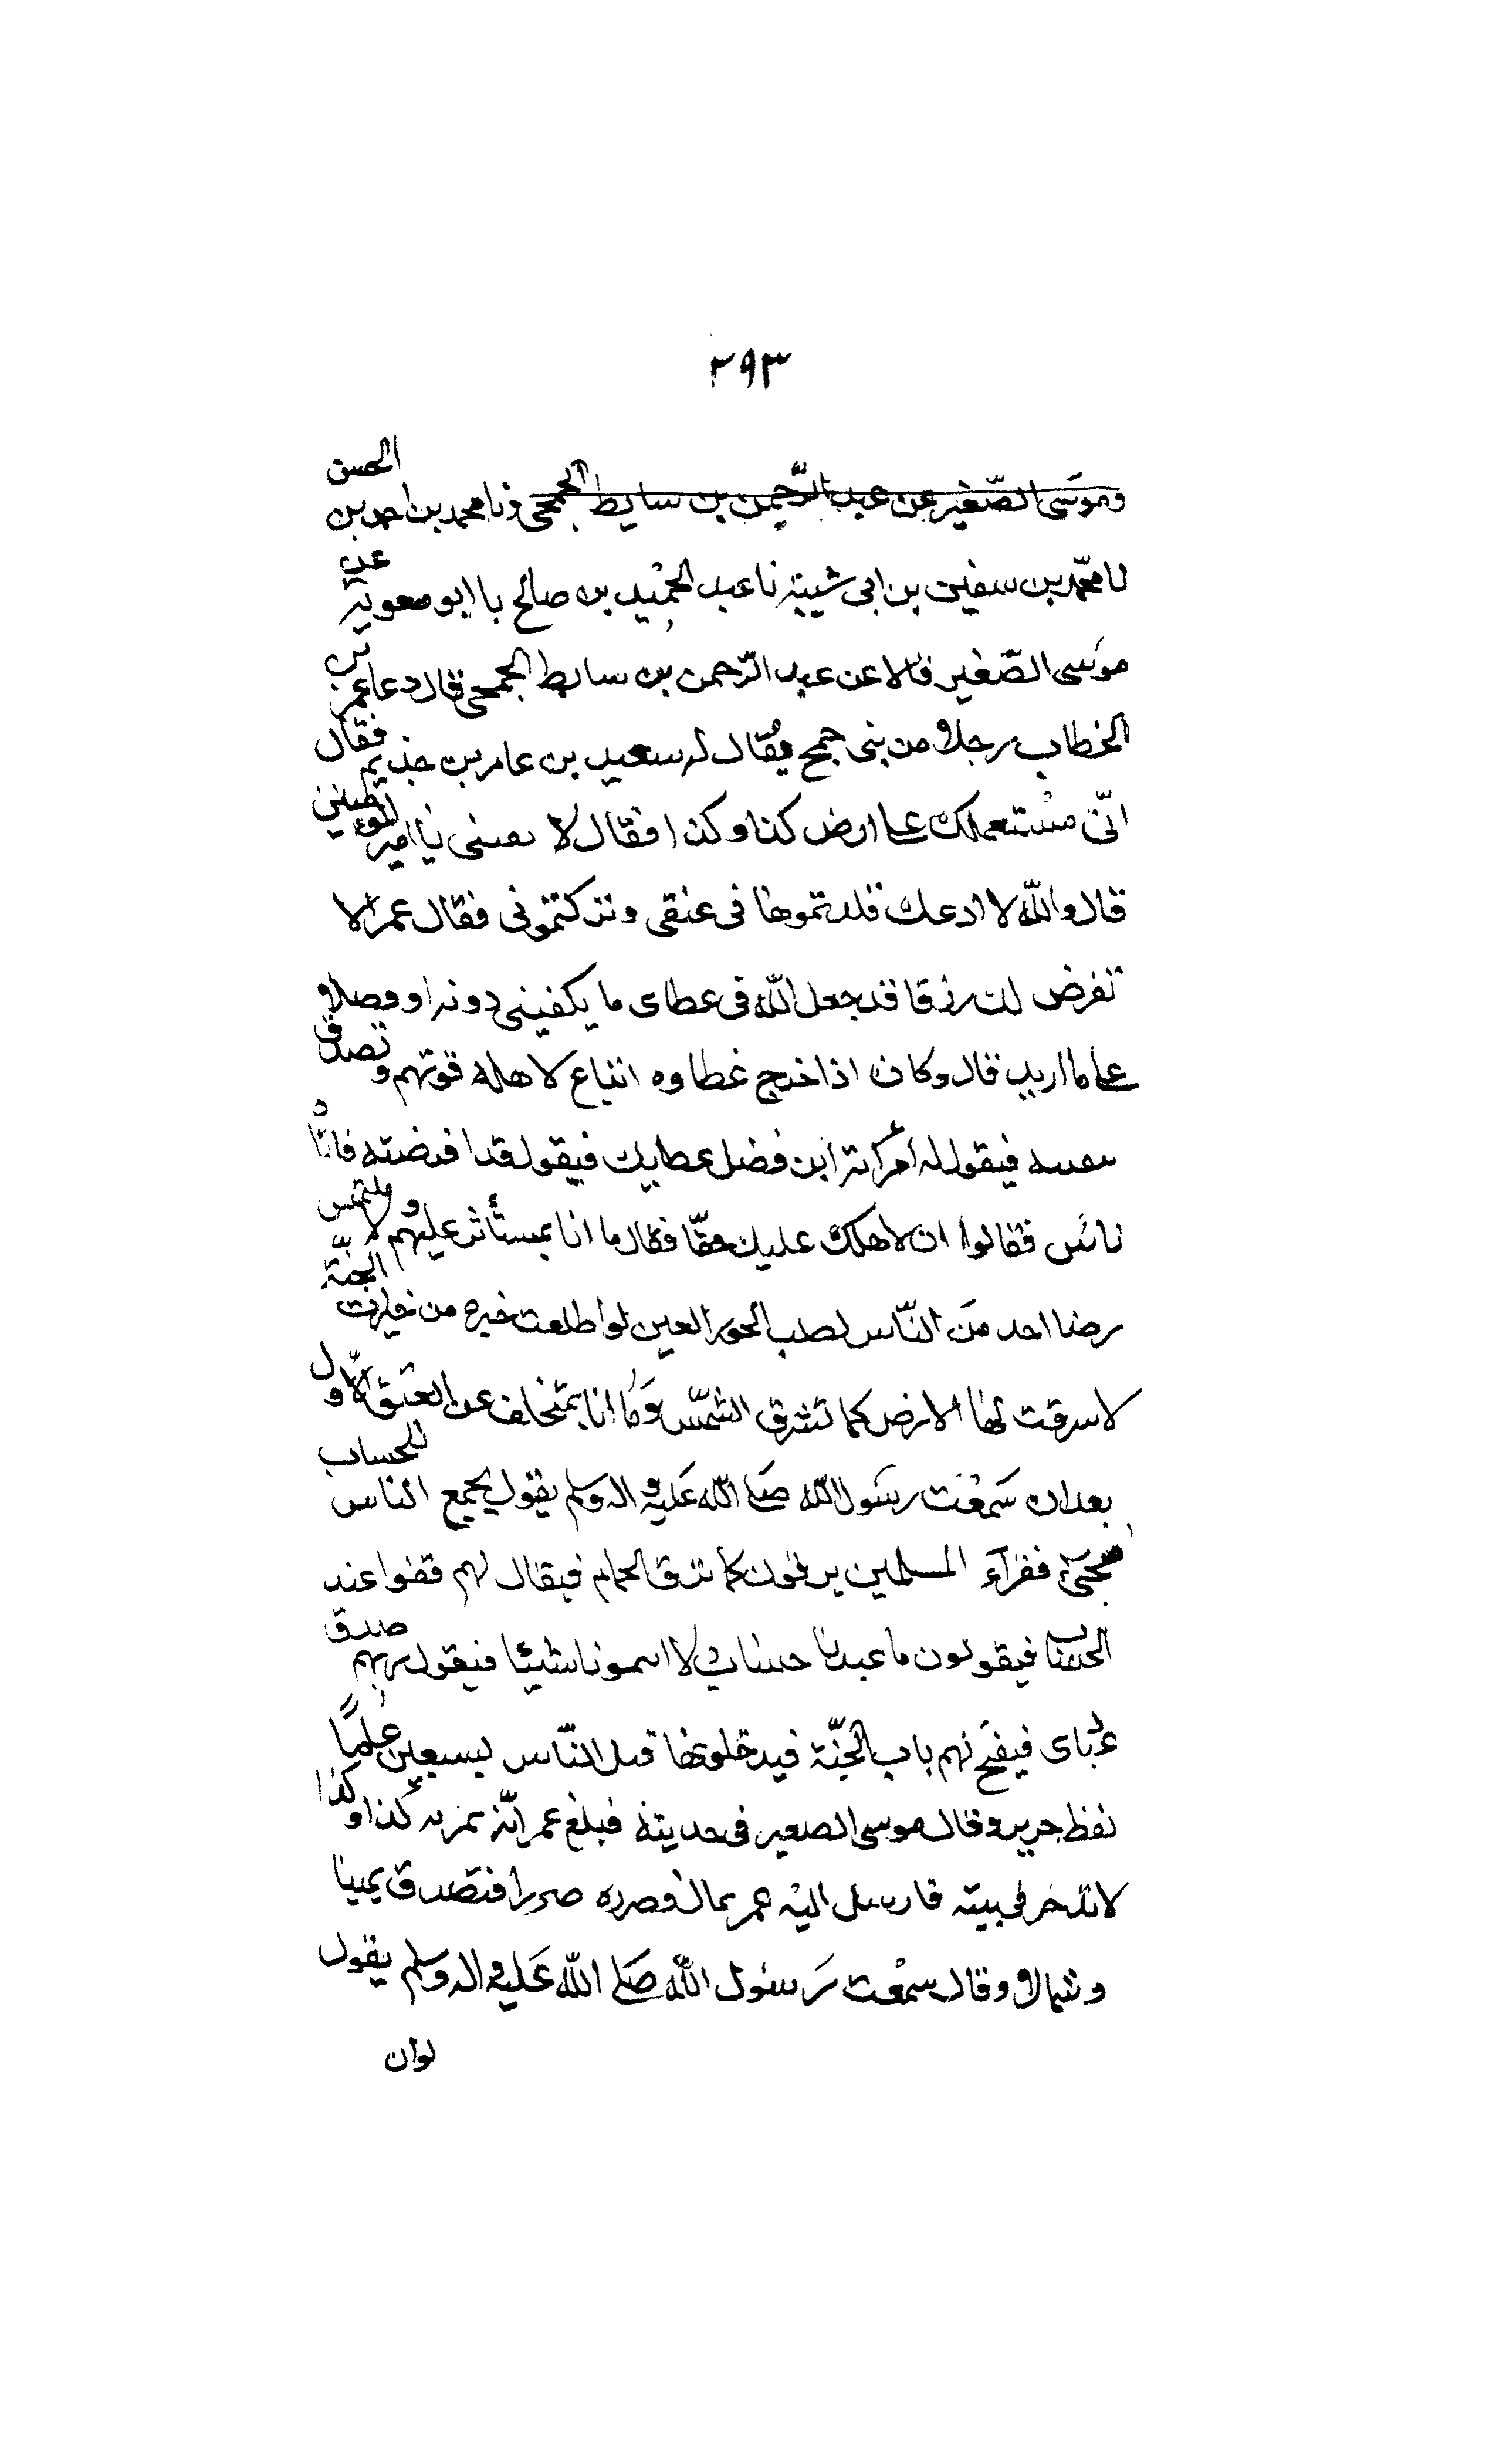 ٢٩٣
وموسى الصّغير عن عبد الرّحمن بن سابط الجمحى ونا محمد بن احمد بن الحسن
نا محمّد بن سفين بن ابى شيبة نا عبد الحميد بن صالح با ابو معوية عن
موسى الصّغير قالا عن عبد الرّحمن بن سابط الجمحى قال دعا عمر بن
الخطاب رجلا من بنى جمح يُقال له سعيد بن عامر بن حذيم فقال
انّى مستعملك على ارض كذا وكذا فقال لا يا امير
قال والله لا ادعك قلدتموها فى عنقى وتتركتمونى فقال عمر الا
نفرض لك رزقا قد جعل الله فى عطاى ما يكفينى دونه او فضلا
على ما اريد قال وكان اذا خرج عطاوه ابتاع لاهله قوتهم وتصدق
فيقول له امراته اين فضل عطايك فيقول قد اقرضته فاتاه
ناس فقالوا ان لاهلك عليك حقّا فقال ما انا بمستأثر عليهم ولا ملتمس
رضا احد من النّاس لطلب الحور العين لو اطلعت خيرة من خيرات الجنّة
لاسرقت لها الارض كما تشرق الشّمس وما انا بمتخلف عن العنق الاوّل
بعد ان سمعت رسول الله صلى الله عليه واله وسلم يقول يجمع الناس للحساب
فيجىء فقرآء المسلمين يزفون كما تزف الحمام فيقال لهم قفوا عند
الحساب فيقولون ما عبدنا شيئا فيقول ربهم صدق
عبادى فيفتح لهم باب الجنّة فيدخلونها قبل النّاس بسبعين عاما
لفظ جرير وقال موسى الصغير فى حديثه فبلغ عمر انّه يمر به كذا وكذا
لا يدخر فى بيته فارسل اليه عمر بمال فصرره صررا فتصدق يمينا
وشمالا وقال سمعت رسول الله صلى الله عليه واله وسلم يقول
لوان